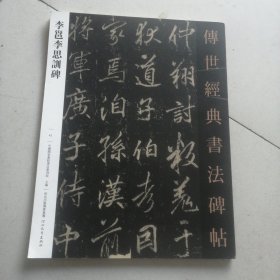 傳世經典書法碑帖
仲翔討叛羌于
狄道子伯考因
家焉洎孫漢前
將軍廣子侍中
李邕李思訓碑